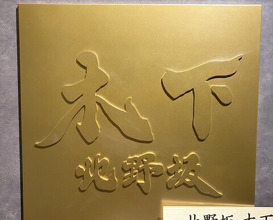 木下
北野坂
北野坂 木下